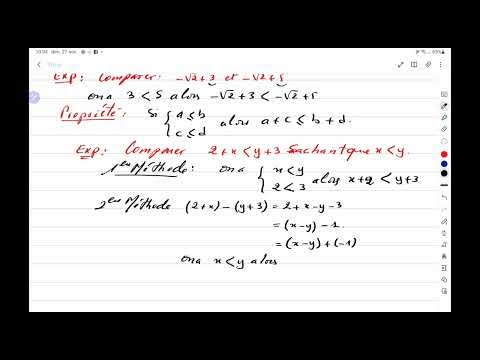 Exp: Comparer: -√2+3 et -√2+5
on a 3 < 5 alors -√2+3 < -√2+5
Propriété: Si { a≤b
c≤d alors a+c ≤ b+d.
Exp: Comparer 2+x < y+3 Sachant que x < y.
1ere Méthode: on a { x<y
2<3 alors x+2 < y+3
2eme Méthode (2+x)-(y+3) = 2+x-y-3
= (x-y)-1.
= (x-y)+(-1)
on a x<y alors